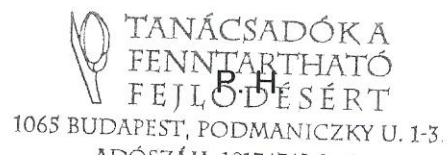 TANÁCSADÓK A
FENNTARTHATÓ
P. H
FEJLŐDÉSÉRT
1065 BUDAPEST, PODMANICZKY U. 1-3.